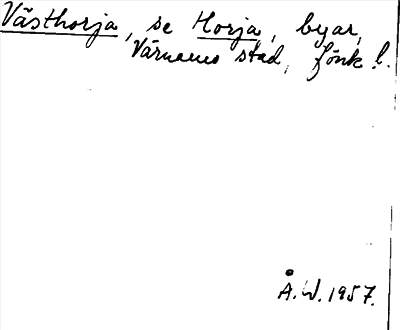 Västhorja, se Horja, byar,
Värnamo stad, Jönk. l.
Å.W. 1957.